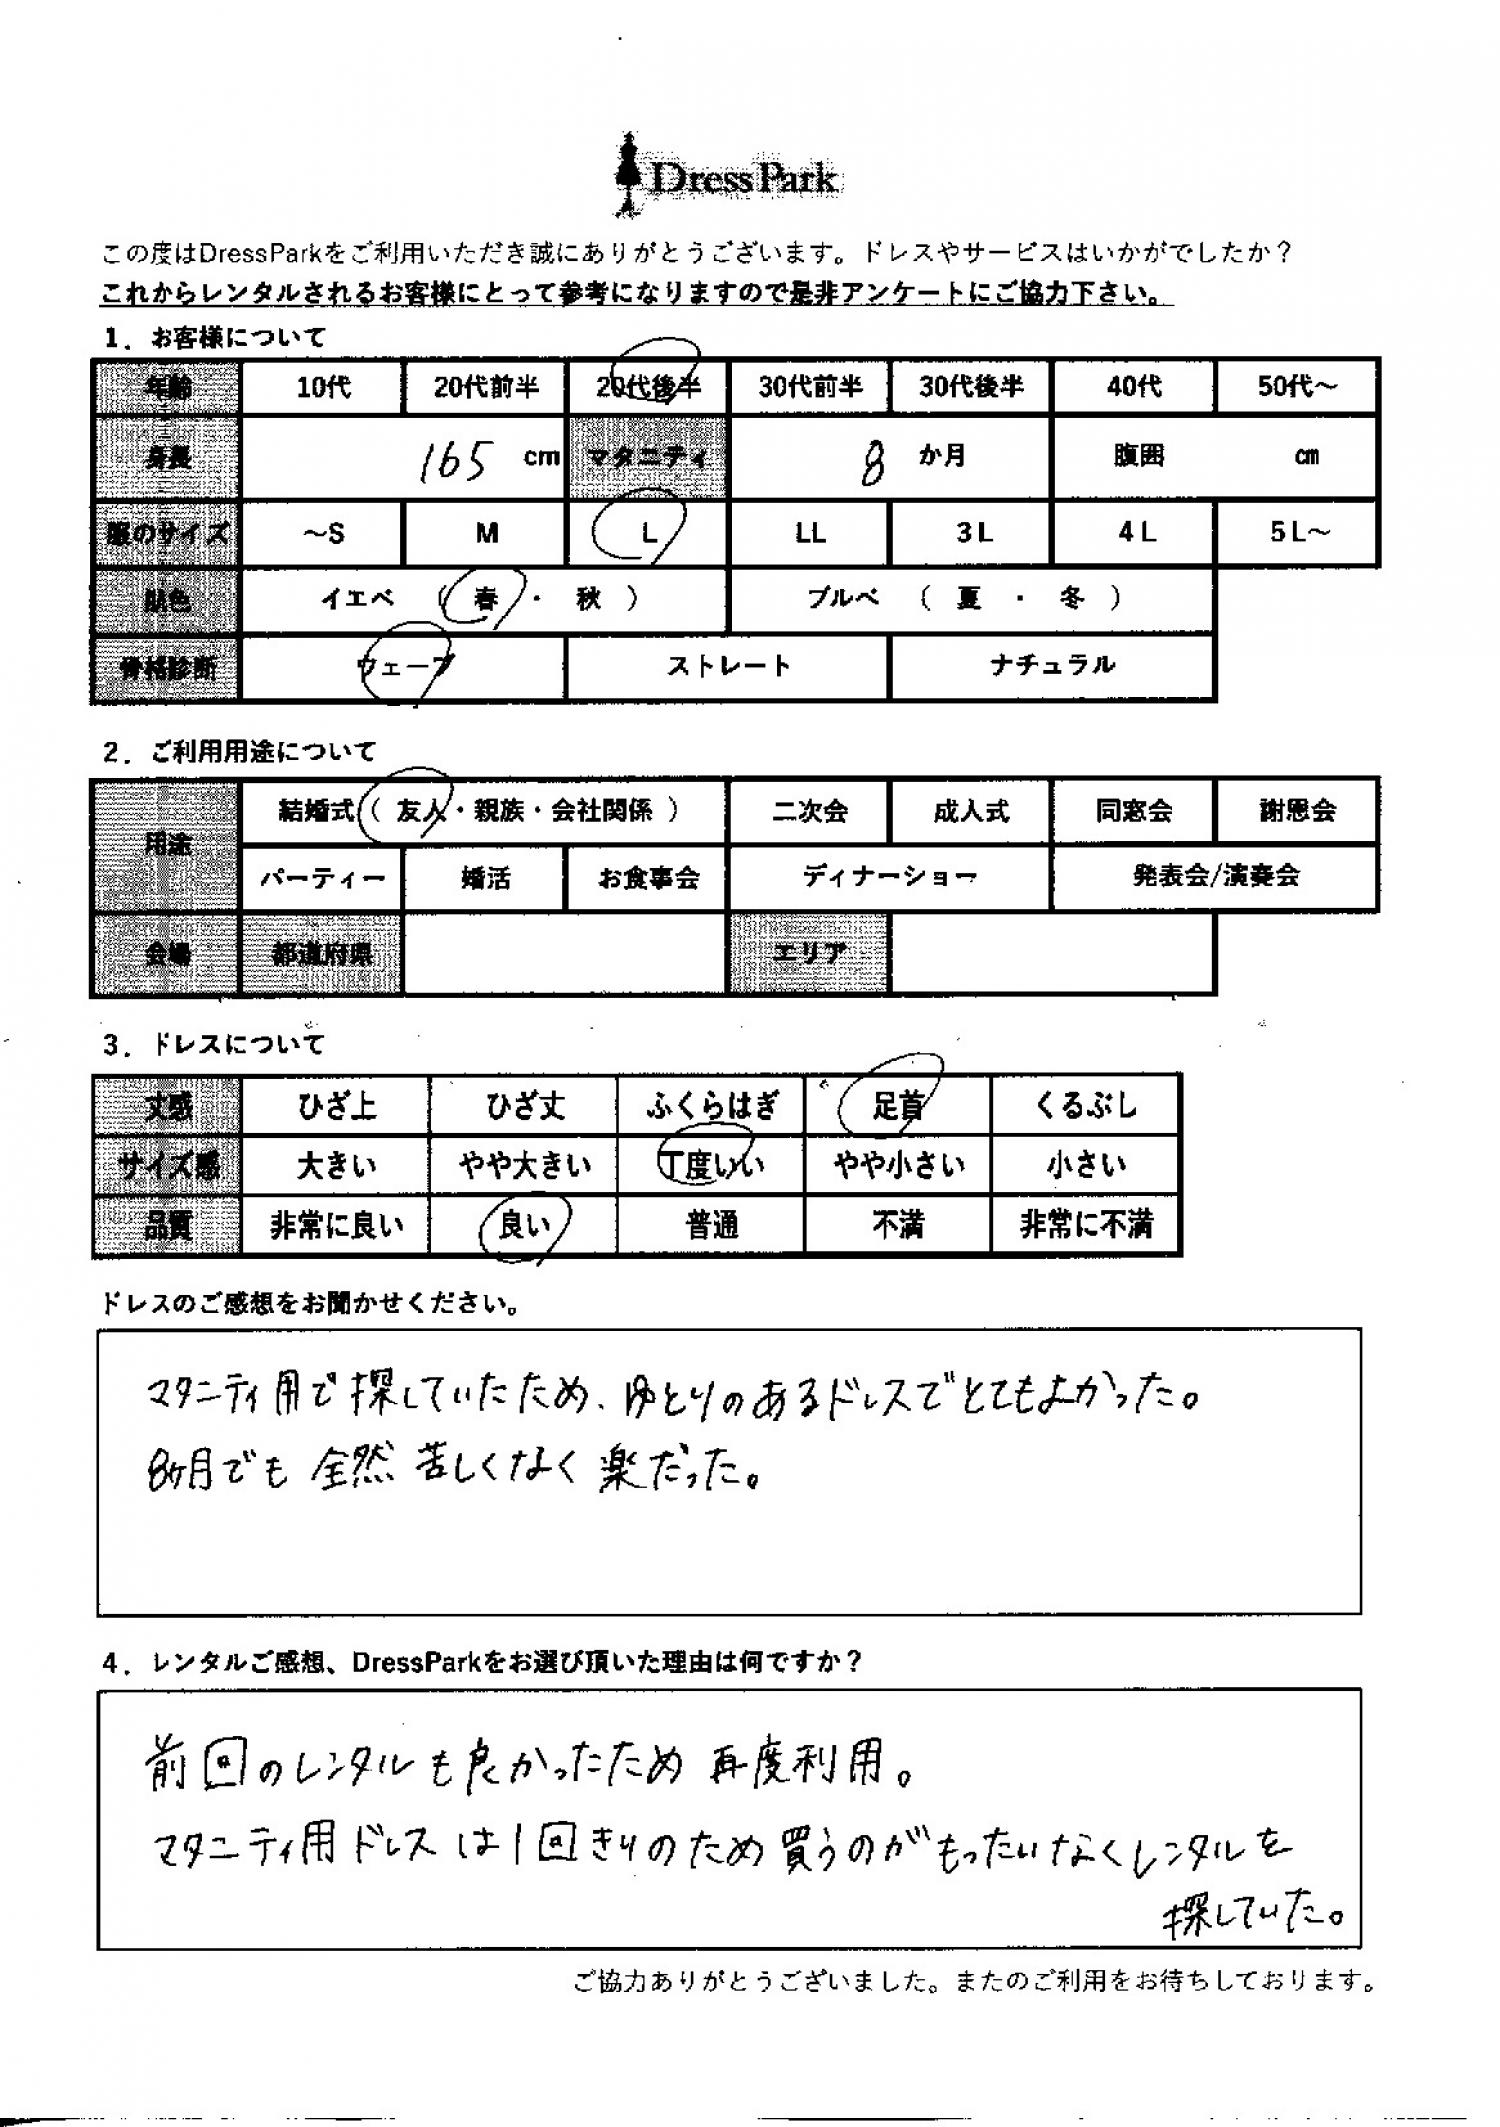 DressPark
この度はDressParkをご利用いただき誠にありがとうございます。ドレスやサービスはいかがでしたか？
これからレンタルされるお客様にとって参考になりますので是非アンケートにご協力下さい。
1．お客様について
年齢 10代 20代前半 20代後半 30代前半 30代後半 40代 50代～
身長 165 cm マタニティ 8 か月 腹囲 cm
服のサイズ ～S M L LL 3L 4L 5L～
肌色 イエベ （ 春 ・ 秋 ） ブルベ （ 夏 ・ 冬 ）
骨格診断 ウェーブ ストレート ナチュラル
2．ご利用用途について
用途 結婚式（ 友人・親族・会社関係 ） 二次会 成人式 同窓会 謝恩会
パーティー 婚活 お食事会 ディナーショー 発表会/演奏会
会場 都道府県 エリア
3．ドレスについて
丈感 ひざ上 ひざ丈 ふくらはぎ 足首 くるぶし
サイズ感 大きい やや大きい 丁度いい やや小さい 小さい
品質 非常に良い 良い 普通 不満 非常に不満
ドレスのご感想をお聞かせください。
マタニティ用で探していたため、ゆとりのあるドレスでとてもよかった。
8ヶ月でも全然苦しくなく楽だった。
4．レンタルご感想、DressParkをお選び頂いた理由は何ですか？
前回のレンタルも良かったため再度利用。
マタニティ用ドレスは1回きりのため買うのがもったいなくレンタルを
探していた。
ご協力ありがとうございました。またのご利用をお待ちしております。